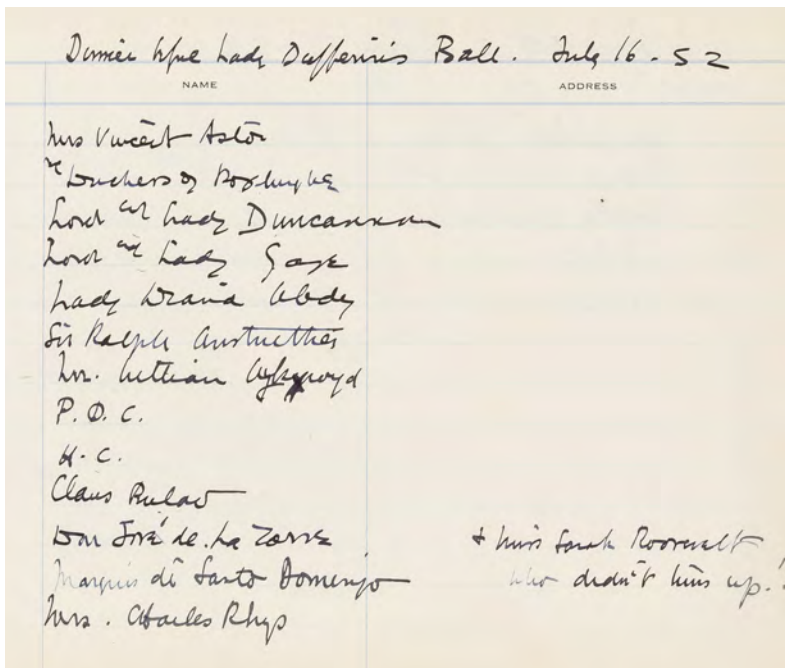 Dinner before Lady Dufferin's Ball. July 16 - 52
NAME ADDRESS
Mrs Vincent Astor
The Duchess of Roxburghe
Lord and Lady Duncannon
Lord and Lady Gage
Lady Diana Abdy
Sir Ralph Anstruther
Mr. William Aykroyd
P.D.C.
H.C.
Claus
Don José de la
Marquis de Santo Domingo
Mrs. Charles Rhys
+ Miss Sarah Roosevelt
who didn't turn up!